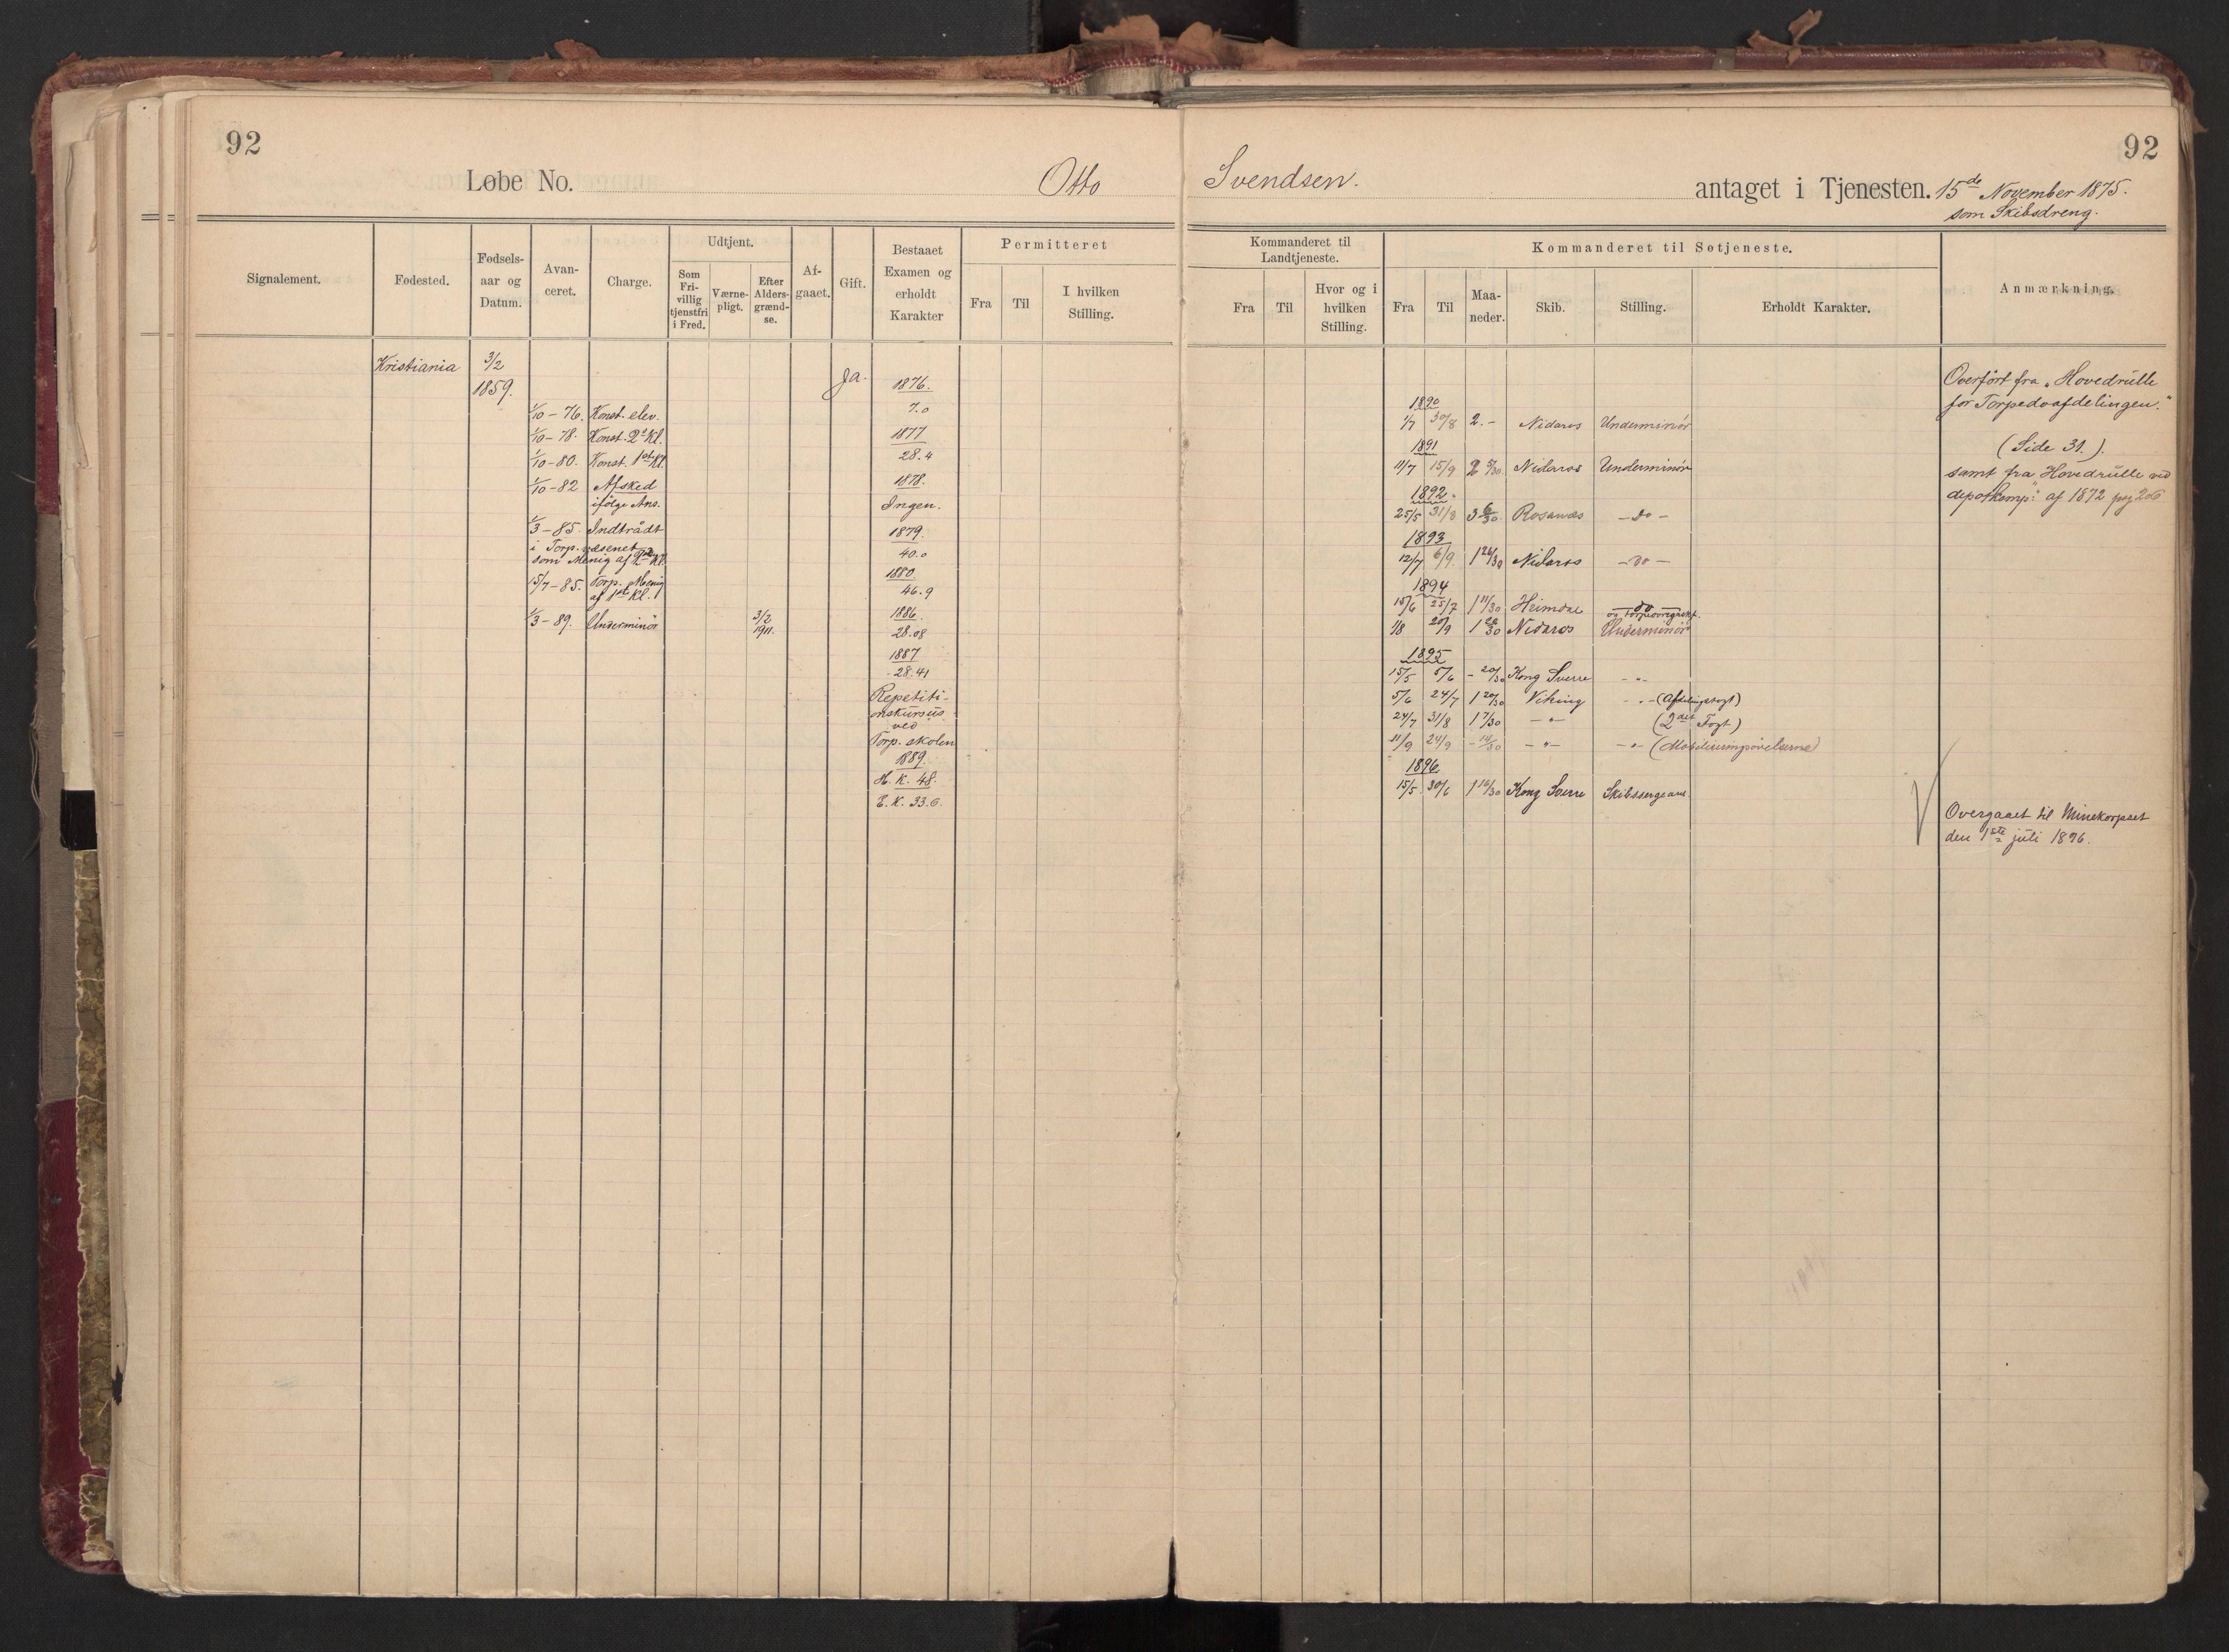 92
Løbe No. Otto
Signalement.
Fødested.
Fødsels-
aar og
Datum.
Avan-
ceret.
Charge.
Udtjent.
Som
Fri-
villig
tjenstfri
i Fred.
Værne-
pligt.
Efter
Alders-
grænd-
se.
Af-
gaaet.
Gift.
Bestaaet
Examen og
erholdt
Karakter
Permitteret
Fra
Til
I hvilken
Stilling.
Kristiania
3/2
1859.
1/10 - 76. Konst. elev.
1/10 - 78. Konst. 2' Kl.
1/10 - 80. Konst. 1st Kl.
1/10 - 82 Afsked
ifølge Ans.
1/3 - 85. Indtrådt
i Torp. væsenet
som Menig af 2den Kl.
15/7 - 85. Torp. Menig
af 1ste Kl.
1/3 - 89. Underminör
3/2
1911.
Ja.
1876.
7.0
1877
28.4
1878.
Ingen.
1879.
40.0
1880.
46.9
1886.
28.08
1887
28.41
Repetiti-
onskursus
ved
Torp. skolen
1889.
M. K. 48.
E. K. 33.6.
92
Svendsen. antaget i Tjenesten. 15de November 1875.
som Skibsdreng.
Kommanderet til
Landtjeneste.
Fra
Til
Hvor og i
hvilken
Stilling.
Kommanderet til Søtjeneste.
Fra
Til
Maa-
neder.
Skib.
Stilling.
Erholdt Karakter.
Anmærkning.
1890
1/7 30/8 2.- Nidaros Underminör
1891
11/7 15/9 2 5/30 Nidaros Underminör
1892.
25/5 31/8 3 6/30 Rosenvæs - do -
1893
12/7 6/9. 1 26/30 Nidaros - do -
1894
15/6 25/7 1 11/30 Heimdal do
1/8 20/9 1 20/30 Nidaros Underminör
1895
15/5 5/6 - 20/30 Kong Sverre - " -
5/6 24/7 1 20/30 Viking - " - (Afdelingstogt)
24/7 31/8 1 7/30 - " - (2det Togt)
11/9 24/9 - 14/30 - " - - " -
1896
15/5 30/6 1 16/30 Kong Sverre Skibssergeant.
Overført fra "Hovedrulle
for Torpedoafdelingen."
(Side 31.).
samt fra "Hovedrulle ved
depotkomp." af 1872 pag 206
Overgaaet til Minekorpset
den 1ste juli 1896.